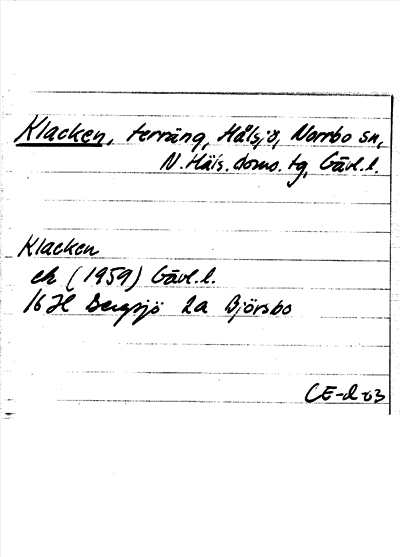 Klacken, terräng, Hålsjö, Norrbo sn,
N. Häls. doms. tg, Gävl. l.
Klacken
ek (1959) Gävl. l.
16 H Bergsjö 2a Björsbo
CE-d-03